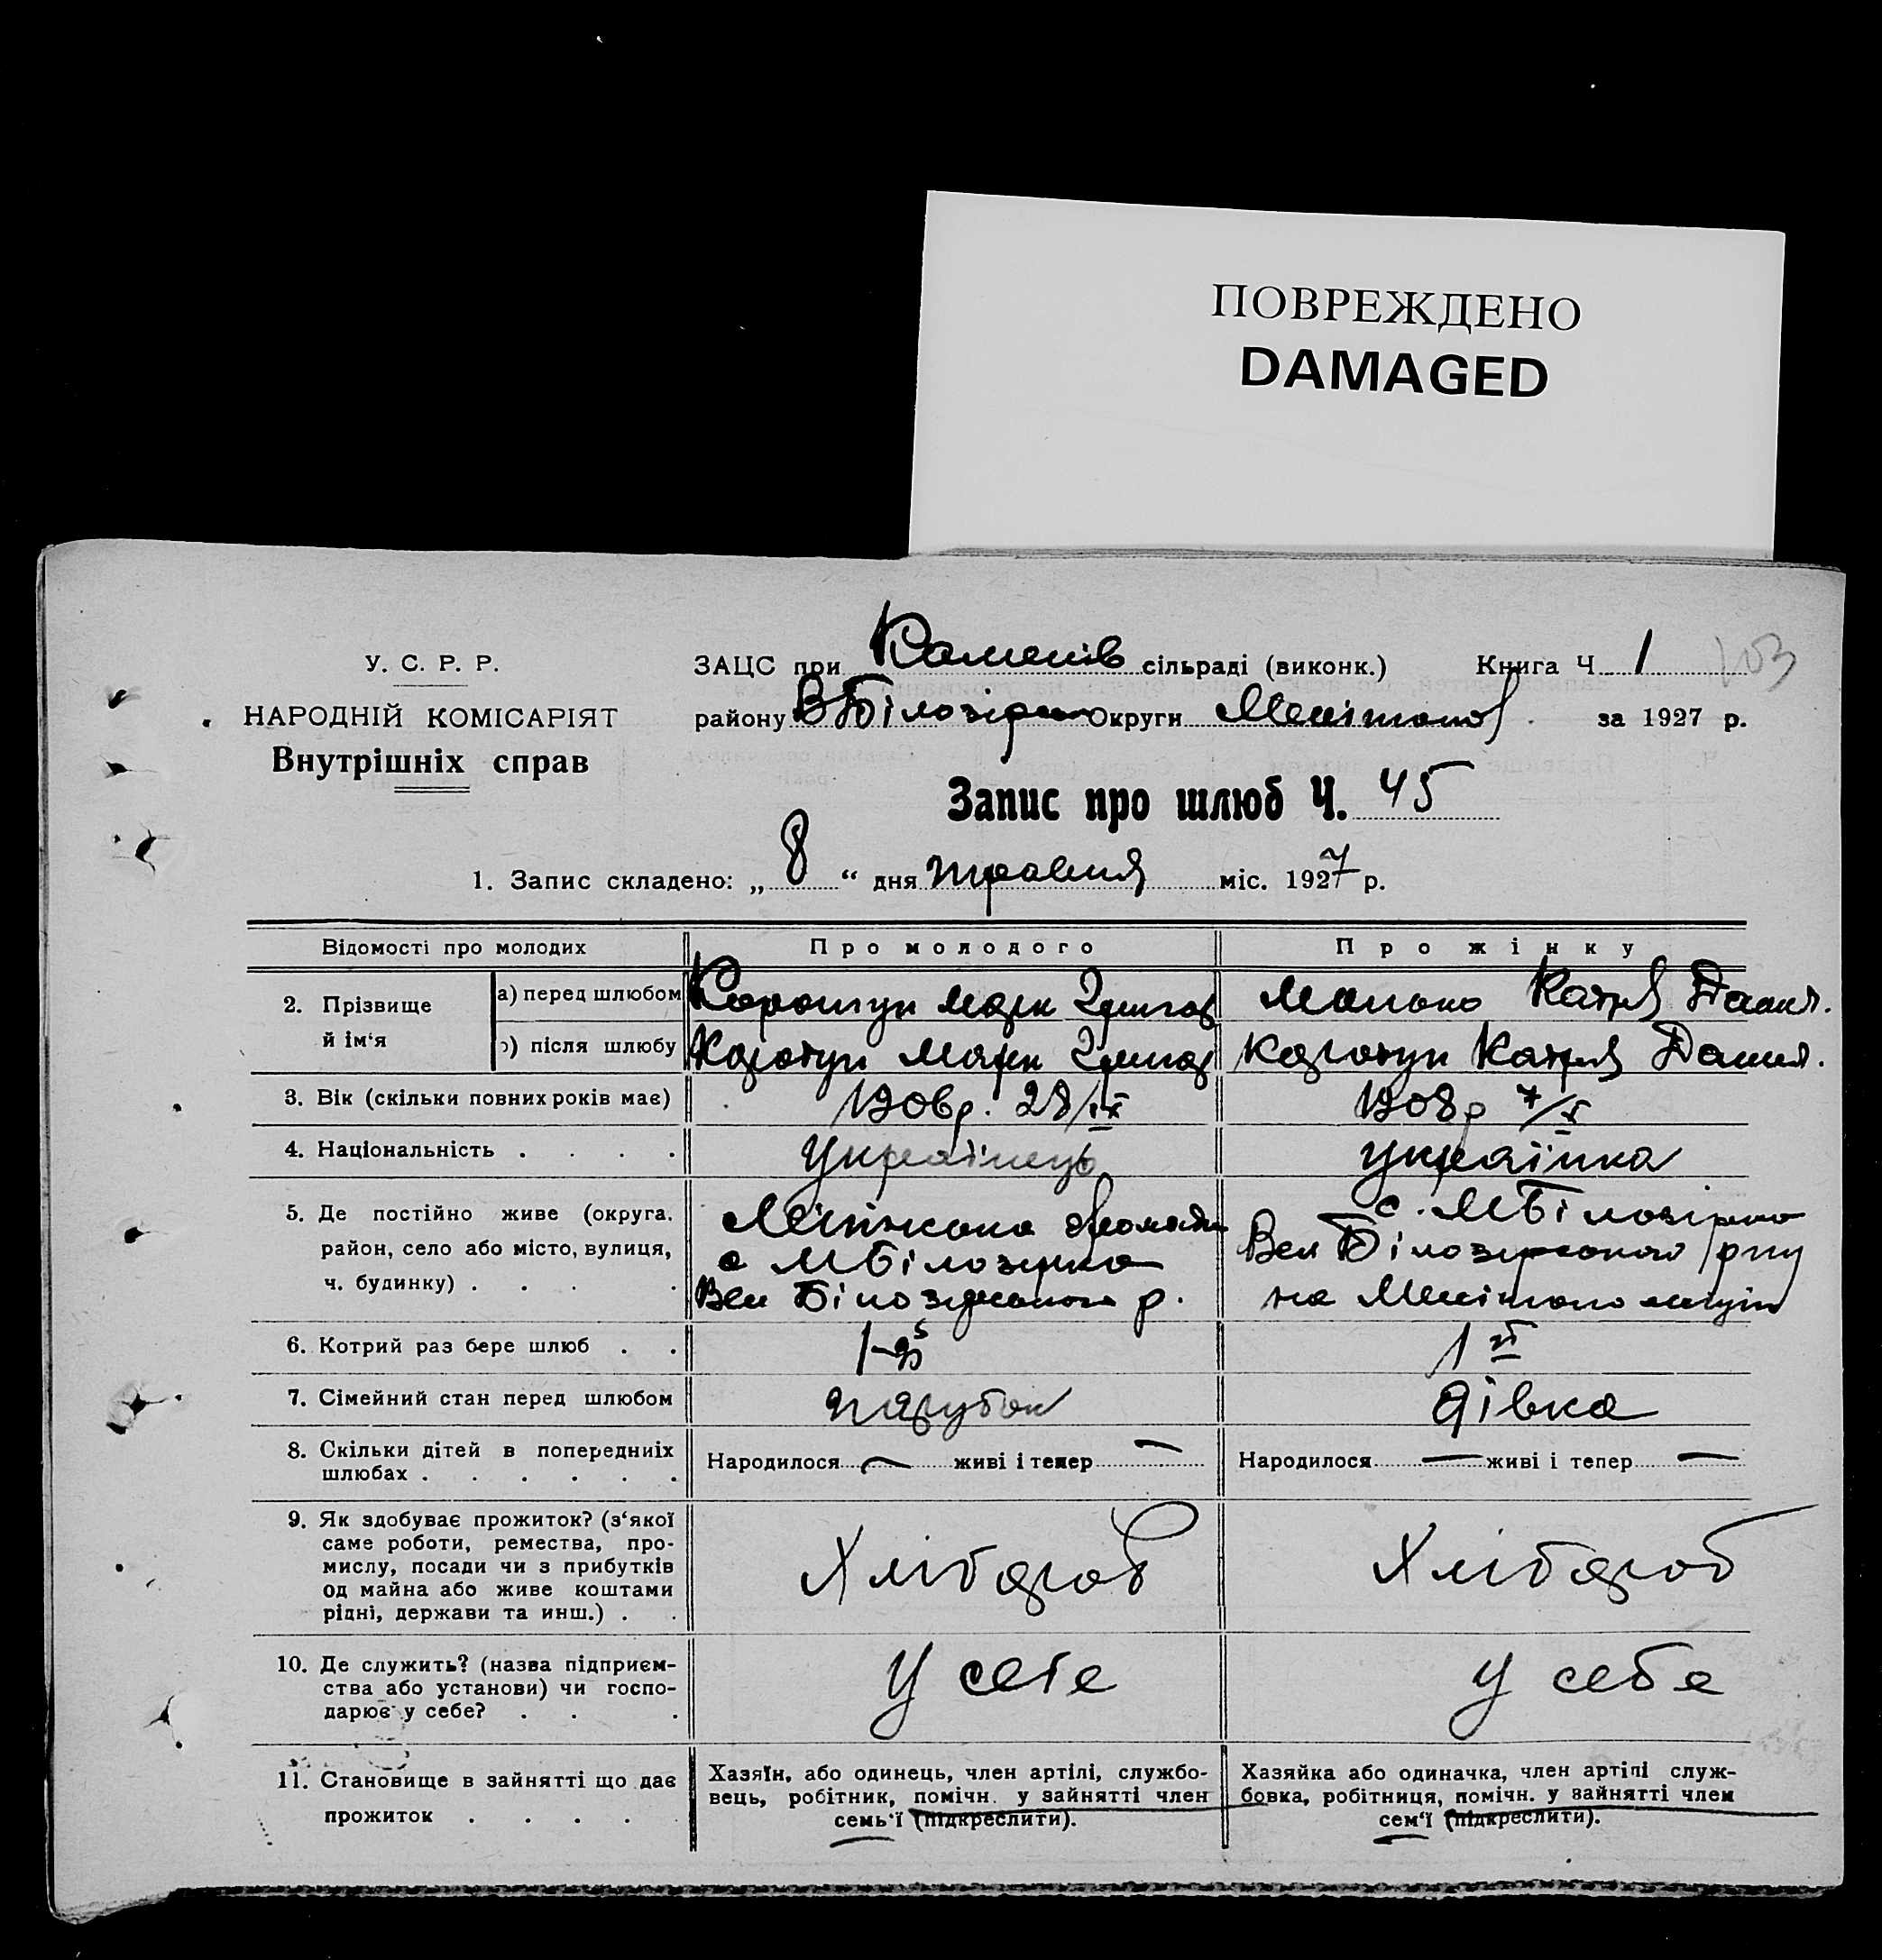 ПОВРЕЖДЕНО
DAMAGED
У. С. Р. Р.
НАРОДНІЙ КОМІСАРІЯТ
Внутрішніх справ
ЗАЦС при Каменів сільраді (виконк.) Книга Ч. 1 103
району ВБілозірськ Округи Мелітопол. за 1927 р.
Запис про шлюб Ч. 45
1. Запис складено: „ 8 “ дня травня міс. 1927 р.
Відомості про молодих Про молодого Про жінку
2. Прізвище й ім‘я
а) перед шлюбом Коротун Марк Катря Данил.
б) після шлюбу Коротун Марк Коротун Катря Данил.
3. Вік (скільки повних років має) 1906 р. 28/IX 1908 р 7/X
4. Національність українець українка
5. Де постійно живе (округа, район, село або місто, вулиця, ч. будинку)
громади
с МБілозірка
Вел Білозірського р.
с. МБілозірка
Вел Білозірського р-ну
на Мелітопольщині
6. Котрий раз бере шлюб 1-й 1й
7. Сімейний стан перед шлюбом парубок дівка
8. Скільки дітей в попередниіх шлюбах
Народилося — живі і тепер — Народилося — живі і тепер —
9. Як здобуває прожиток? (з‘якої
саме роботи, ремества, про-
мислу, посади чи з прибутків
од майна або живе коштами
рідні, держави та инш.)
Хлібороб Хлібороб
10. Де служить? (назва підприєм-
ства або установи) чи госпо-
дарює у себе?
у себе у себе
11. Становище в зайнятті що дає
прожиток
Хазяїн, або одинець, член артілі, службо-
вець, робітник, помічн. у зайнятті член
семь‘ї (підкреслити).
Хазяйка або одиначка, член артілі служ-
бовка, робітниця, помічн. у зайнятті член
сем‘ї (підкреслити).